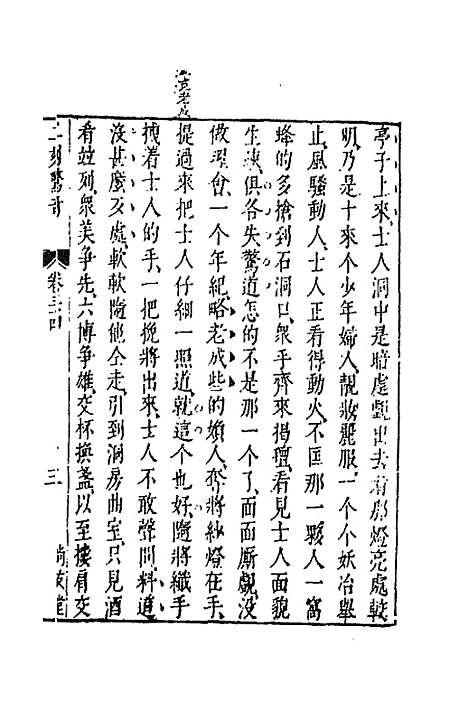 亭子上來士人洞中是暗處覷出去看那燈亮處較
明乃是十來个少年婦人靚妝麗服一个个妖冶舉
止風騷動人士人正看得動火不匡那一夥人一窩
蜂的多搶到石洞口衆手齊來揭氊看見士人面貌
生疎俱各失驚道怎的不是那一个了面面厮覷没
做理會一个年紀略老成些的婦人奪將紗燈在手
提過來把士人仔細一照道就這个也好隨將纖手
拽着士人的手一把挽將出來士人不敢聲問料道
没甚麽歹處軟軟隨他仝走引到洞房曲室只見酒
肴並列衆美争先六博争雄交杯換盞以至摟肩交
二刻驚奇
卷三十四
三
尚友堂
老成